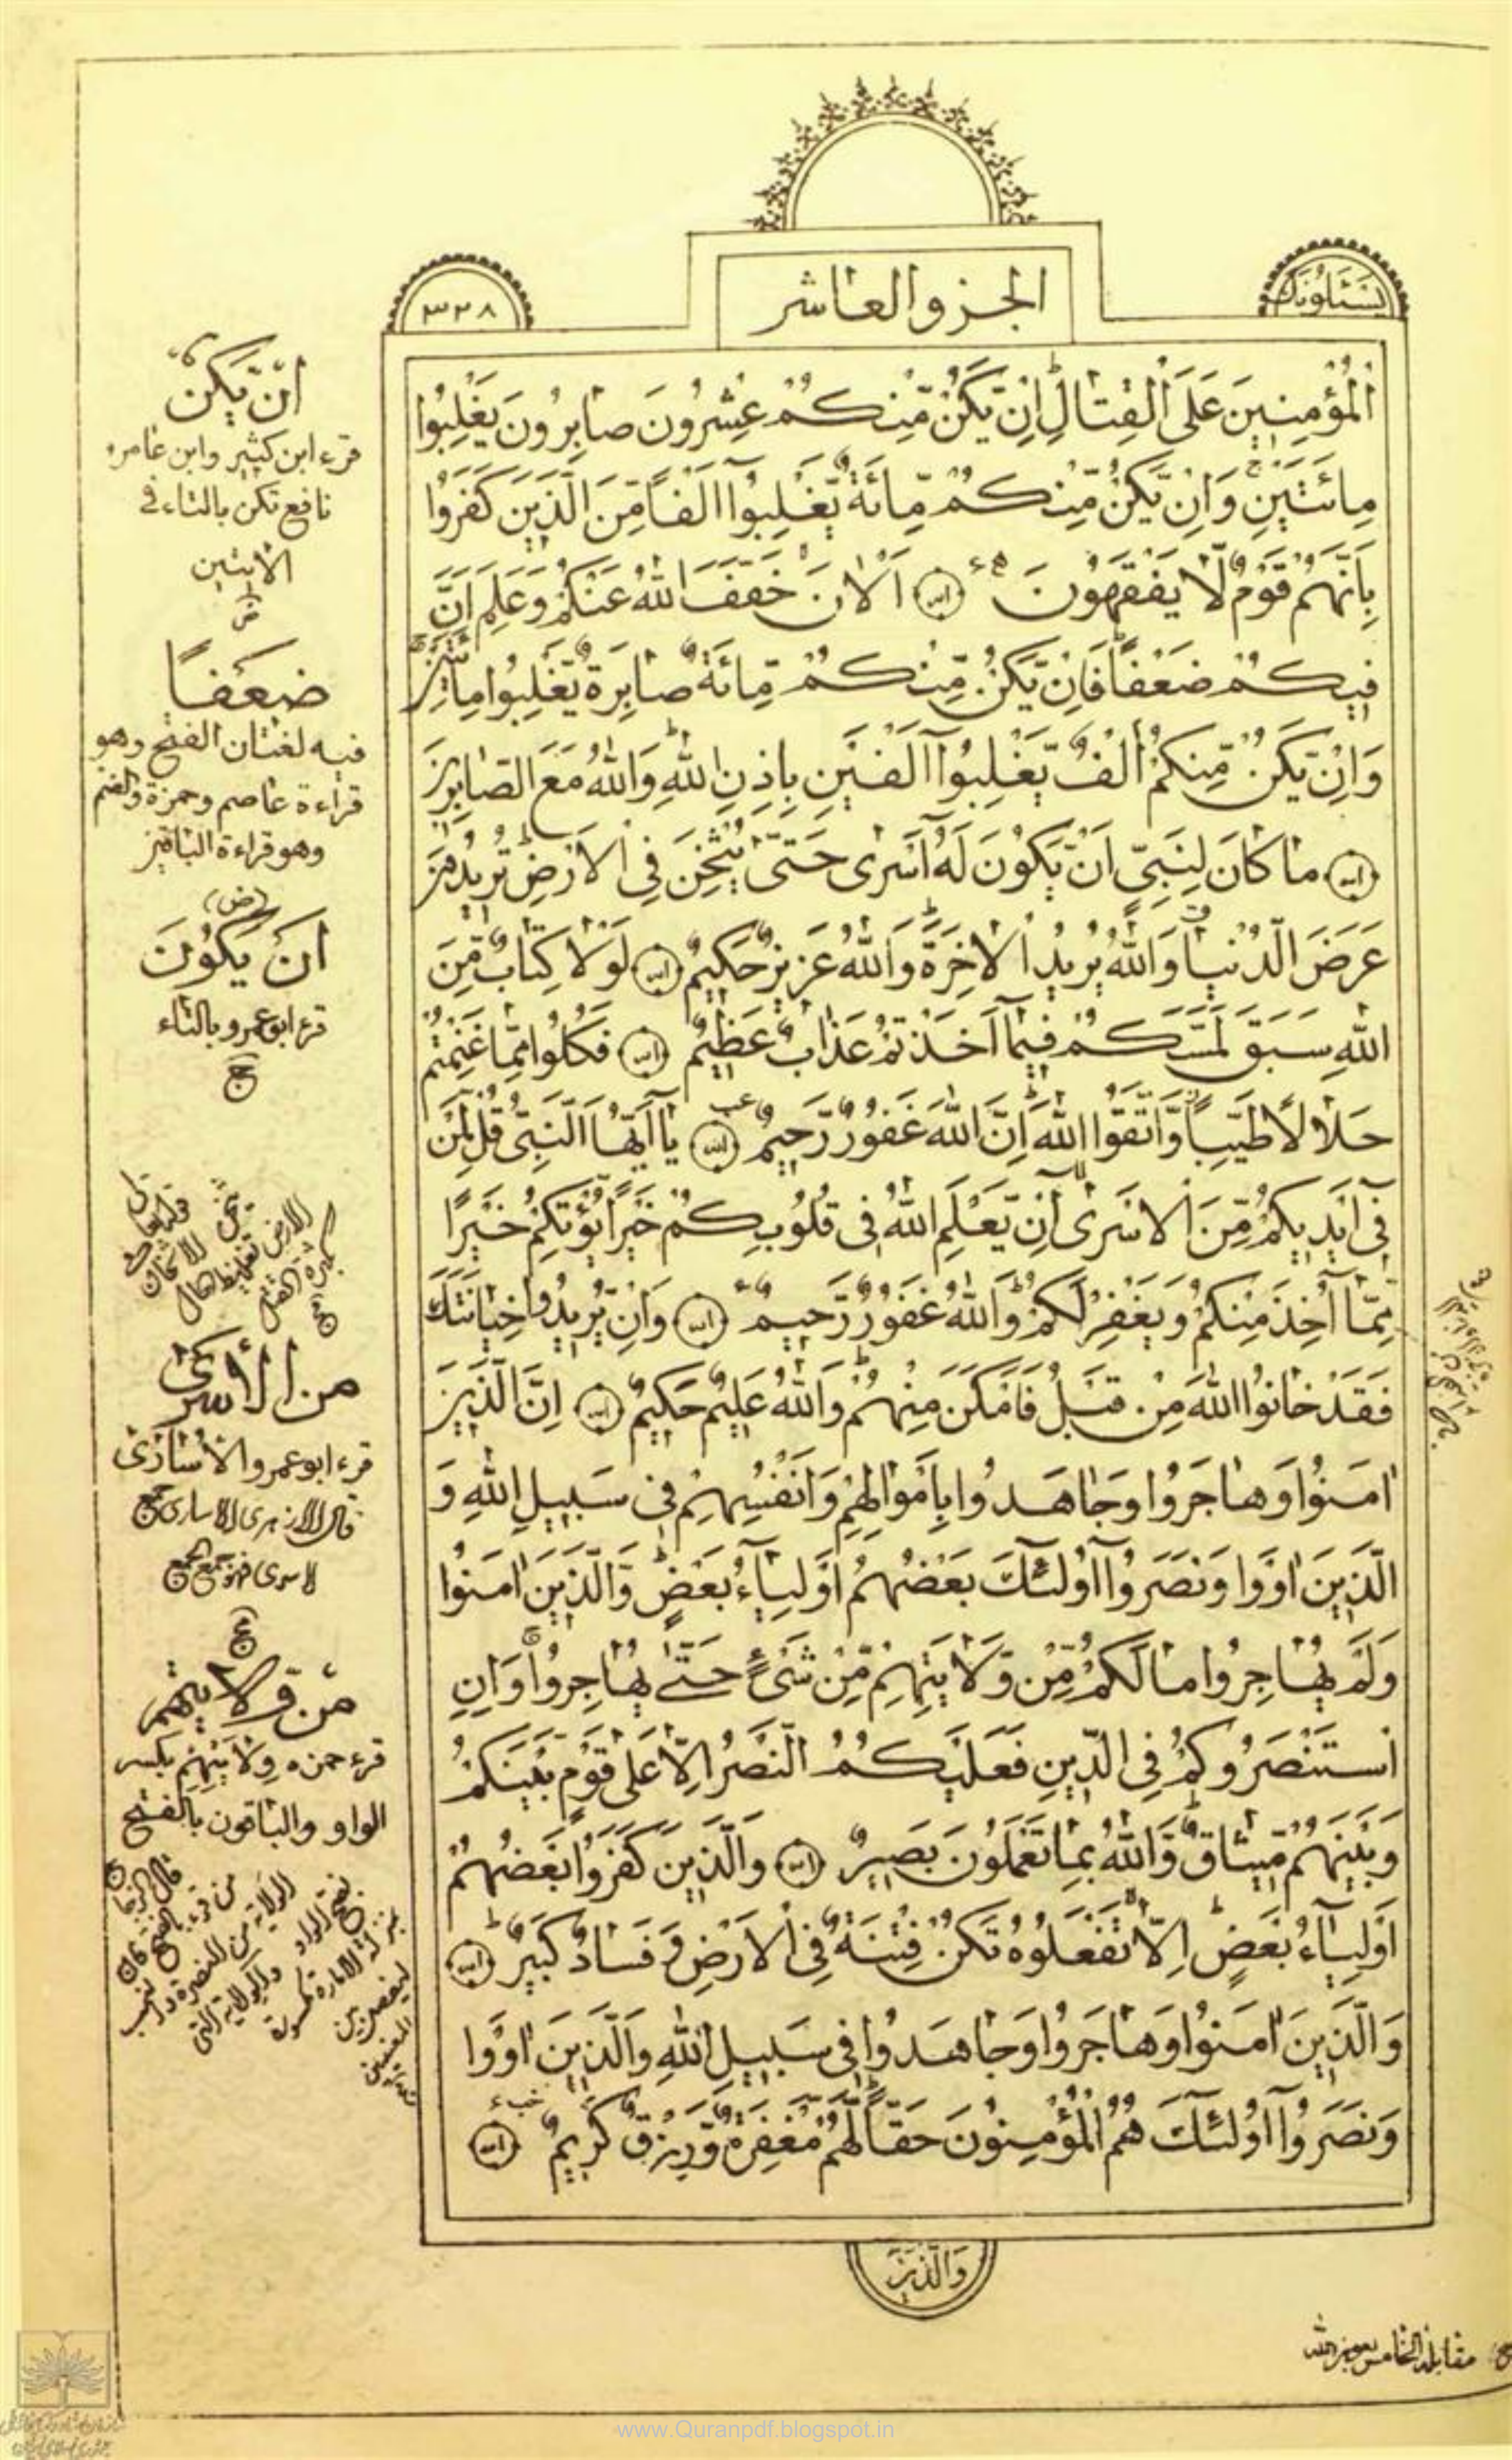 يسئلونك
الجزو العاشر
٣٢٨
الْمُؤْمِنِينَ عَلَى الْقِتَالِ اِنْ يَكُنْ مِنْكُمْ عِشْرُونَ صَابِرُونَ يَغْلِبُوا
مِائَتَيْنِ وَاِنْ يَكُنْ مِنْكُمْ مِائَةٌ يَغْلِبُوا اَلْفًا مِنَ الَّذِينَ كَفَرُوا
بِاَنَّهُمْ قَوْمٌ لَا يَفْقَهُونَ اَلْاٰنَ خَفَّفَ اللّٰهُ عَنْكُمْ وَعَلِمَ اَنَّ
فِيكُمْ ضَعْفًا فَاِنْ يَكُنْ مِنْكُمْ مِائَةٌ صَابِرَةٌ يَغْلِبُوا مِائَتَيْنِ
وَاِنْ يَكُنْ مِنْكُمْ اَلْفٌ يَغْلِبُوا اَلْفَيْنِ بِاِذْنِ اللّٰهِ وَاللّٰهُ مَعَ الصَّابِرِينَ
مَا كَانَ لِنَبِيٍّ اَنْ يَكُونَ لَهُ اَسْرٰى حَتّٰى يُثْخِنَ فِي الْاَرْضِ تُرِيدُونَ
عَرَضَ الدُّنْيَا وَاللّٰهُ يُرِيدُ الْاٰخِرَةَ وَاللّٰهُ عَزِيزٌ حَكِيمٌ لَوْلَا كِتَابٌ مِنَ
اللّٰهِ سَبَقَ لَمَسَّكُمْ فِيمَا اَخَذْتُمْ عَذَابٌ عَظِيمٌ فَكُلُوا مِمَّا غَنِمْتُمْ
حَلَالًا طَيِّبًا وَاتَّقُوا اللّٰهَ اِنَّ اللّٰهَ غَفُورٌ رَحِيمٌ يَا اَيُّهَا النَّبِيُّ قُلْ لِمَنْ
فِي اَيْدِيكُمْ مِنَ الْاَسْرٰى اِنْ يَعْلَمِ اللّٰهُ فِي قُلُوبِكُمْ خَيْرًا يُؤْتِكُمْ خَيْرًا
مِمَّا اُخِذَ مِنْكُمْ وَيَغْفِرْ لَكُمْ وَاللّٰهُ غَفُورٌ رَحِيمٌ وَاِنْ يُرِيدُوا خِيَانَتَكَ
فَقَدْ خَانُوا اللّٰهَ مِنْ قَبْلُ فَاَمْكَنَ مِنْهُمْ وَاللّٰهُ عَلِيمٌ حَكِيمٌ اِنَّ الَّذِينَ
اٰمَنُوا وَهَاجَرُوا وَجَاهَدُوا بِاَمْوَالِهِمْ وَاَنْفُسِهِمْ فِي سَبِيلِ اللّٰهِ وَ
الَّذِينَ اٰوَوْا وَنَصَرُوا اُولٰئِكَ بَعْضُهُمْ اَوْلِيَاءُ بَعْضٍ وَالَّذِينَ اٰمَنُوا
وَلَمْ يُهَاجِرُوا مَا لَكُمْ مِنْ وَلَايَتِهِمْ مِنْ شَيْءٍ حَتّٰى يُهَاجِرُوا وَاِنِ
اسْتَنْصَرُوكُمْ فِي الدِّينِ فَعَلَيْكُمُ النَّصْرُ اِلَّا عَلٰى قَوْمٍ بَيْنَكُمْ
وَبَيْنَهُمْ مِيثَاقٌ وَاللّٰهُ بِمَا تَعْمَلُونَ بَصِيرٌ وَالَّذِينَ كَفَرُوا بَعْضُهُمْ
اَوْلِيَاءُ بَعْضٍ اِلَّا تَفْعَلُوهُ تَكُنْ فِتْنَةٌ فِي الْاَرْضِ وَفَسَادٌ كَبِيرٌ
وَالَّذِينَ اٰمَنُوا وَهَاجَرُوا وَجَاهَدُوا فِي سَبِيلِ اللّٰهِ وَالَّذِينَ اٰوَوْا
وَنَصَرُوا اُولٰئِكَ هُمُ الْمُؤْمِنُونَ حَقًّا لَهُمْ مَغْفِرَةٌ وَرِزْقٌ كَرِيمٌ
وَالَّذِينَ
ان يكن
قرء ابن كثير وابن عامر و
نافع تكن بالتاء في
الايتين
ضعفا
فيه لغتان الفتح وهو
قراءة عاصم وحمزة والضم
وهو قراءة الباقين
(ض)
ان يكون
قرء ابو عمرو بالتاء
من الأسرى
قرء ابو عمرو الاسارى
قال الازهرى الاسارى جمع
لاسرى فهو جمع الجمع
من ولايتهم
قرء حمزه ولايتهم بكسر
الواو والباقون بالفتح
مقابلة الخامس بعون الله
www.Quranpdf.blogspot.in